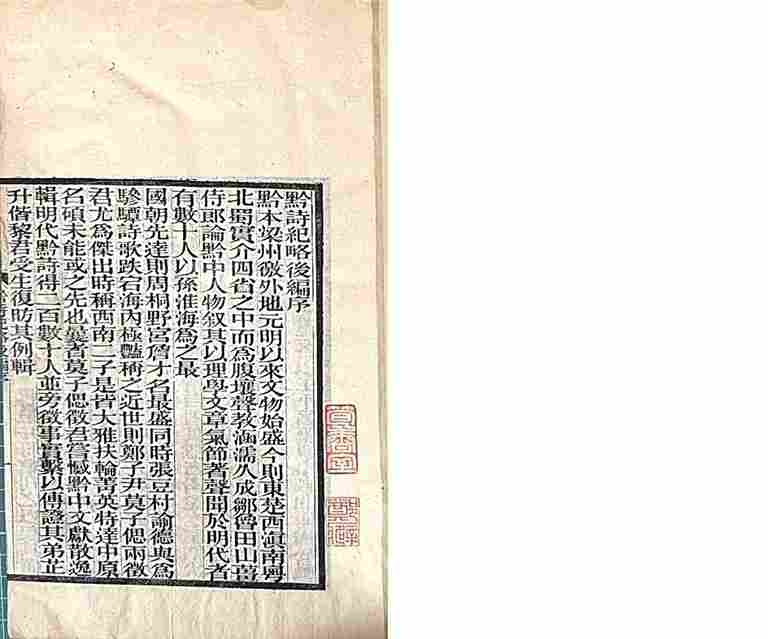 黔詩紀略後編序
黔本梁州徼外地元明以來文物始盛今則東楚西滇南粵
北蜀實介四省之中而為腹壤聲教涵濡久成鄒魯田山薑
侍郎論黔中人物叙其以理學文章氣節著聲聞於明代者
有數十人以孫淮海為之最
國朝先達則周桐野宮詹才名最盛同時張豆村諭德與為
驂驔詩歌跌宕海內極豔稱之近世則鄭子尹莫子偲兩徵
君尤為傑出時稱西南二子是皆大雅扶輪菁英特達中原
名碩未能或之先也曩者莫子偲徵君嘗憾黔中文獻散逸
輯明代黔詩得二百數十人並旁徵事實繫以傳證其弟芷
升偕黎君受生復昉其例輯